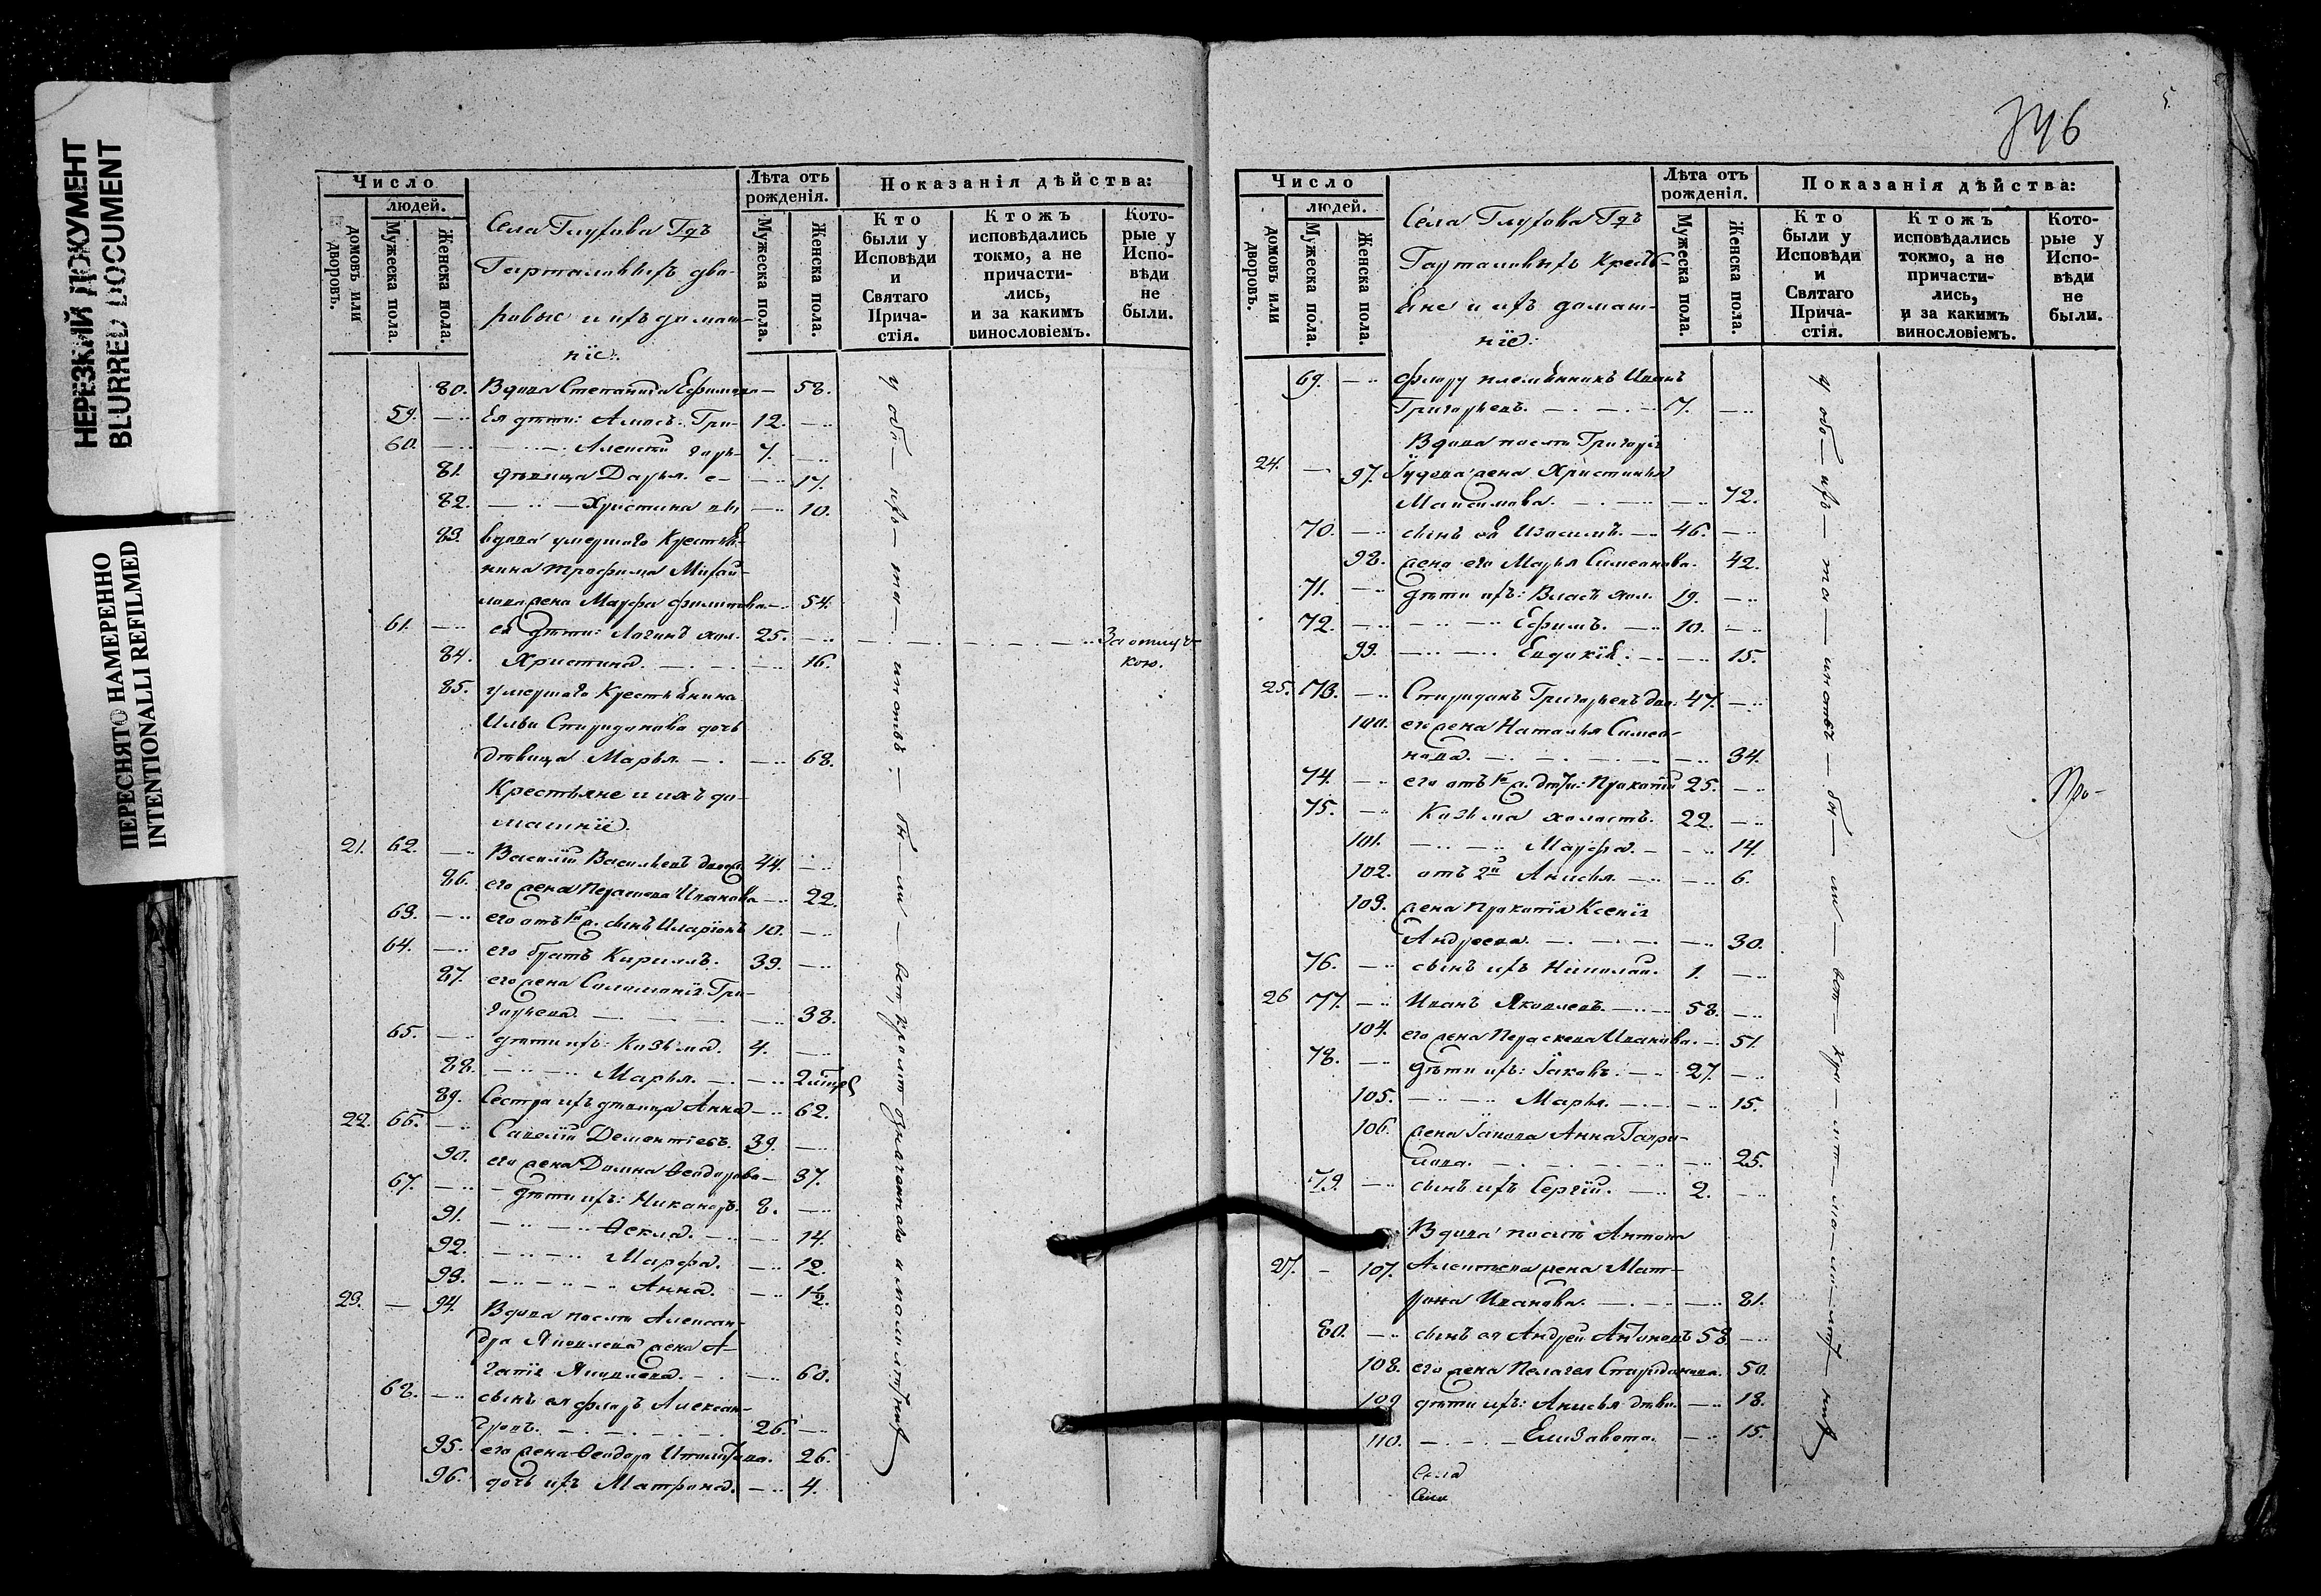 НЕРЕЗКИЙ ДОКУМЕНТ
BLURRED DOCUMENT
ПЕРЕСНЯТО НАМЕРЕННО
INTENTIONALLI REFILMED
Число
людей.
домовъ или дворовъ.
Мужеска пола.
Женска пола.
Села Глухова Гдъ
дво-
ровые и ихъ домаш-
нїе.
Лѣта отъ
рожденія.
Мужеска пола.
Женска пола.
Показанія дѣйства:
Кто
были у
Исповѣди
и
Святаго
Прича-
стія.
Ктожъ
исповѣдались
токмо, а не
причасти-
лись,
и за какимъ
винословіемъ.
Кото-
рые у
Испо-
вѣди
не
были.
80. Вдова Степанида Ефимова — 58.
59. — Ея дѣти: Гри- 12. —
60. — Алексѣй горь- 7. —
81. дѣвица Дарья е- — 17.
82. — Христина вы — 10.
83. вдова умершаго Крестья-
нина Трофима Михай-
лова жена Марфа Филипова — 54.
61. — ея дѣти: Логинъ хол. 25. — За отлуч-
кою.
84. Христина. — 16.
85. умершаго Крестьянина
Ильи Спиридонова дочь
дѣвица Марья — 68.
Крестьяне и ихъ до-
машнїе.
21. 62. — Василїй Васильевъ 44. —
86. его жена Параскева Иванова — 22.
63. — его отъ 1й ж. сынъ Иларїонъ 10. —
64. — его братъ Кириллъ. 39. —
87. его жена Соломонїя Гри-
горьева. — 38.
65. — дѣти ихъ: Козьма. 4. —
88. — Марья. — 2
89. Сестра ихъ дѣвица Анна — 62.
22. 66. — Савелїй Дементїевъ. 39. —
90. его жена Домна Ѳеодорова — 37.
67. — дѣти ихъ: Никаноръ. 8. —
91. — Ѳекла. — 14.
92. — Марфа. — 12.
93. — Анна. — 1½.
23. — 94. Вдова послѣ Алексан-
дра Яковлева жена А-
гапїя Яковлева. — 60.
68. — сынъ ея Флоръ Алексан-
дровъ. — 26. —
95. его жена Ѳеодора Ипполитова. 26.
96. дочь ихъ Матрона. — 4.
346
5.
Число
людей.
домовъ или дворовъ.
Мужеска пола.
Женска пола.
Села Глухова Гдъ
Кресть-
яне и ихъ домаш-
нїе.
Лѣта отъ
рожденія.
Мужеска пола.
Женска пола.
Показанія дѣйства:
Кто
были у
Исповѣди
и
Святаго
Прича-
стія.
Ктожъ
исповѣдались
токмо, а не
причасти-
лись,
и за какимъ
винословіемъ.
Кото-
рые у
Испо-
вѣди
не
были.
69. — Флору племянникъ Иванъ
Григорьевъ. — 7. —
Вдова послѣ Григорїя
24. — 97. жена Христинья
Максимова. — 72.
70. — сынъ ея Изосимъ. — 46. —
98. жена его Марья Симеонова. 42.
71. — дѣти ихъ: Власъ хол. 19. —
72. — Ефимъ. — 10. —
99. — Евдокїя. — 15.
25. 73. — Спиридонъ Григорьевъ 47. —
100. его жена Наталья Симео-
нова. — 34.
74. — его отъ 1й ж. дѣти: Прокопїй 25. —
75. — Козьма холостъ. 22. —
101. — Марфа. — 14.
102. отъ 2й Анисья. — 6.
103. жена Прокопїя Ксенїя
Андреева. — 30.
76. — сынъ ихъ Николай. 1. —
26 77. — Иванъ Яковлевъ. — 58. —
104. его жена Параскева Иванова. — 51.
78. — дѣти ихъ: Іаковъ. — 27. —
105. — Марья. — 15.
106. жена Іакова Анна Гаври-
лова. — 25.
79. — сынъ ихъ Сергїй. — 2. —
Вдова послѣ Антона
27. — 107. Алексѣева жена Мат-
рона Иванова. — 81.
80. — сынъ ея Андрей Антоновъ 58. —
108. его жена Пелагея Спиридонова. 50.
109 дѣти ихъ: Анисья дѣви. — 18.
110. — Елизавета. — 15.
Села
Про-